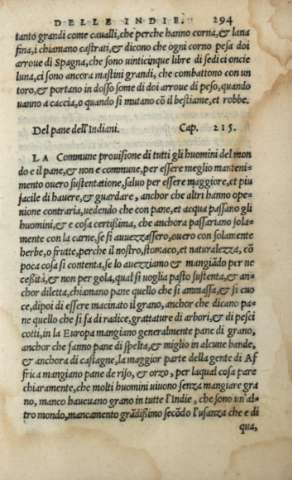 DELLE INDIE. 294
tanto grandi come caualli, che perche hanno corna, & lana
fina, i chiamano castrati, & dicono che ogni corno pesa doi
arroue di Spagna, che sono uinticinque libre di sedici oncie
luna, ci sono ancora mastini grandi, che combattono con un
toro, & portano in dosso some di doi arroue di peso, quando
uanno a caccia, o quando si mutano cõ il bestiame, et robbe.
Del pane dell'Indiani. Cap. 215.
LA Commune prouisione di tutti gli huomini del mon
do e il pane, & non e commune, per essere meglio manteni-
mento ouero sustentatione, saluo per essere maggiore, et piu
facile di hauere, & guardare, anchor che altri hanno opi-
nione contraria, uedendo che con pane, et acqua passano gli
huomini, & e cosa certissima, che anchora passariano sola-
mente con la carne, se si auuezzassero, ouero con solamente
herbe, o frutte, perche il nostro, stomaco, et naturalezza, cõ
poca cosa si contenta, se lo auezziamo & mangiãdo per ne
ceßità, & non per gola, qual si uoglia pasto sustenta, & an-
chor diletta, chiamano pane quello che si ammassa, & si cuo
ce, dipoi di essere macinato il grano, anchor che dicano pa-
ne quello che si fa di radice, grattature di arbori, & di pesci
cotti, in la Europa mangiano generalmente pane di grano,
anchor che fanno pane di spelta, & miglio in alcune bande,
& anchora di castagne, la maggior parte della gente di Af
frica mangiano pane de riso, & orzo, per laqual cosa pare
chiaramente, che molti huomini uiuono senza mangiare gra
no, manco haueuano grano in tutte l'Indie, che sono un'al-
tro mondo, mancamento grãdissimo secõdo l'usanza che e di
qua,